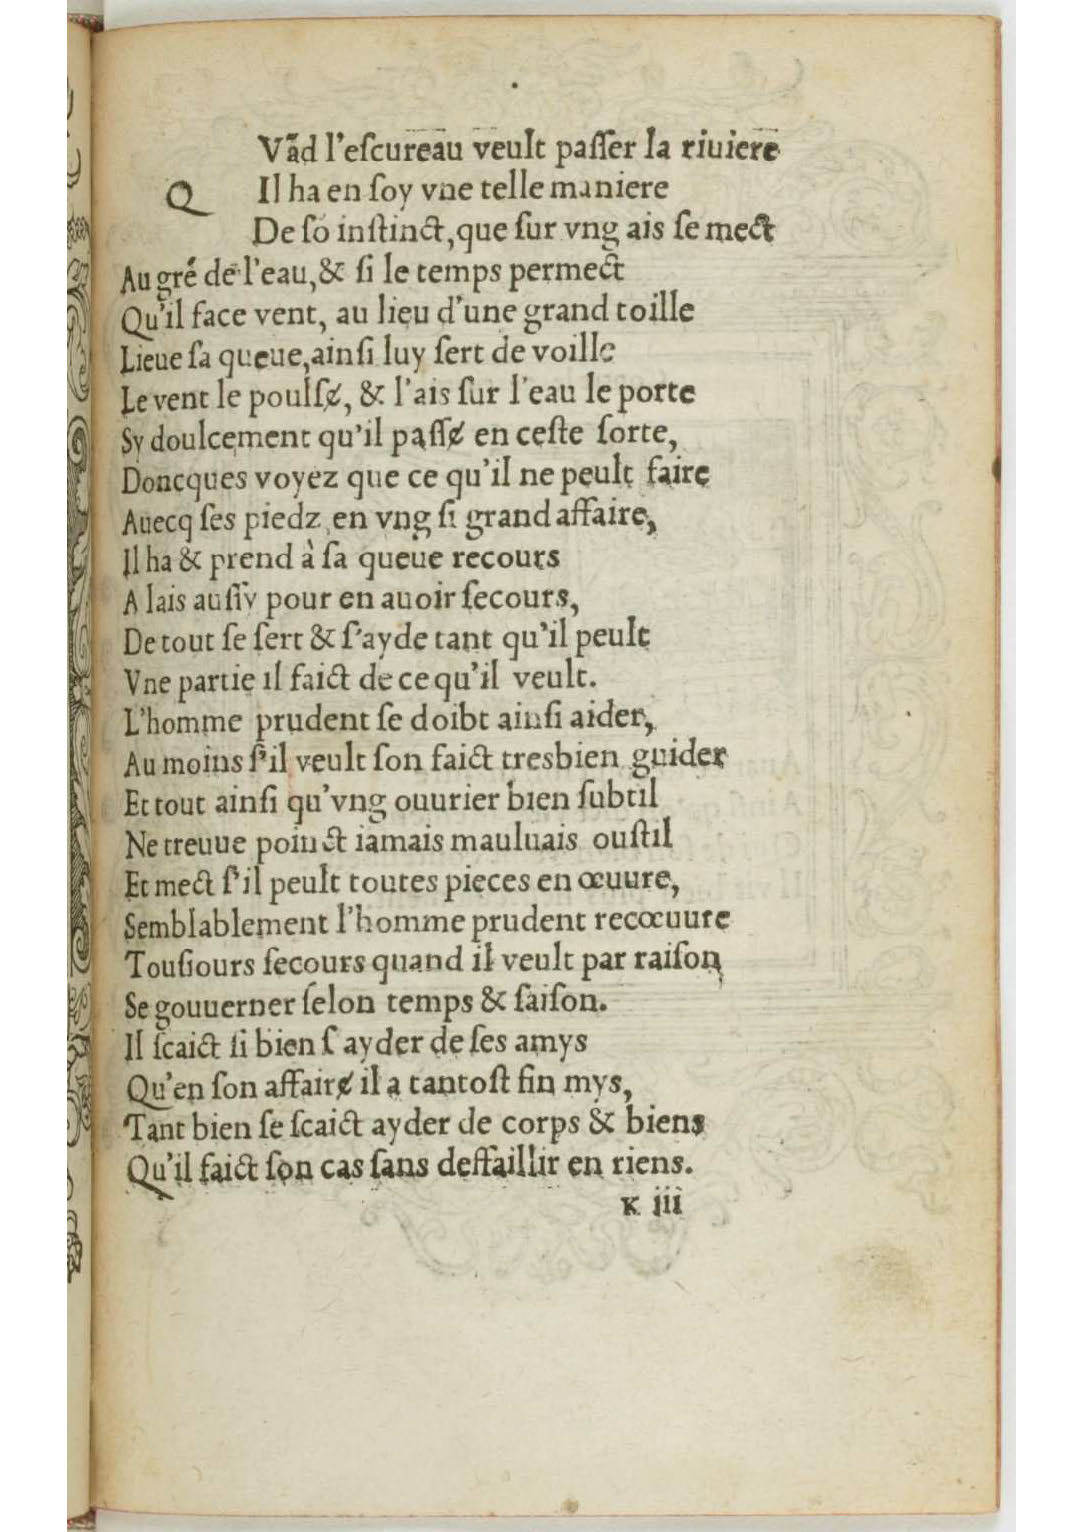 QVãd l'eſcureau veult paſſer la riuiere
Il ha en ſoy vne telle maniere
De ſõ inſtinct, que ſur vng ais ſe mect
Au gré de l'eau, & ſi le temps permect
Qu'il face vent, au lieu d'une grand toille
Lieue ſa queue, ainſi luy ſert de voille
Le vent le poulſɇ, & l'ais ſur l'eau le porte
Sy doulcement qu'il paſſɇ en ceſte ſorte,
Doncques voyez que ce qu'il ne peult faire
Auecq ſes piedz en vng ſi grand affaire,
Il ha & prend à ſa queue recours
A lais auſſy pour en auoir ſecours,
De tout ſe ſert & ſ'ayde tant qu'il peult
Vne partie il faict de ce qu'il veult.
L'homme prudent ſe doibt ainſi aider,
Au moins ſ'il veult ſon faict tresbien guider
Et tout ainſi qu'vng ouurier bien ſubtil
Ne treuue poinct iamais mauluais ouſtil
Et mect ſ'il peult toutes pieces en œuure,
Semblablement l'homme prudent recœuure
Touſiours ſecours quand il veult par raiſon
Se gouuerner ſelon temps & ſaiſon.
Il ſcaict ſi bien ſ'ayder de ſes amys
Qu'en ſon affairɇ il a tantoſt fin mys,
Tant bien ſe ſcaict ayder de corps & biens
Qu'il faict ſon cas ſans deffaillir en riens.
K iii